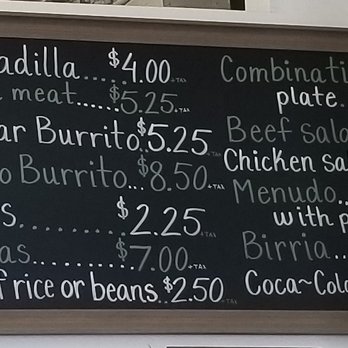 adilla....$4.00+TAX
meat......$5.25+TAX
ar Burrito.$5.25+TAX
o Burrito...$8.50+TAX
s.........$2.25+TAX
as.........$7.00+TAX
f rice or beans.$2.50+TAX
Combinati
plate.
Beef sala
Chicken sa
Menudo..
with p
Birria..
Coca~Cola